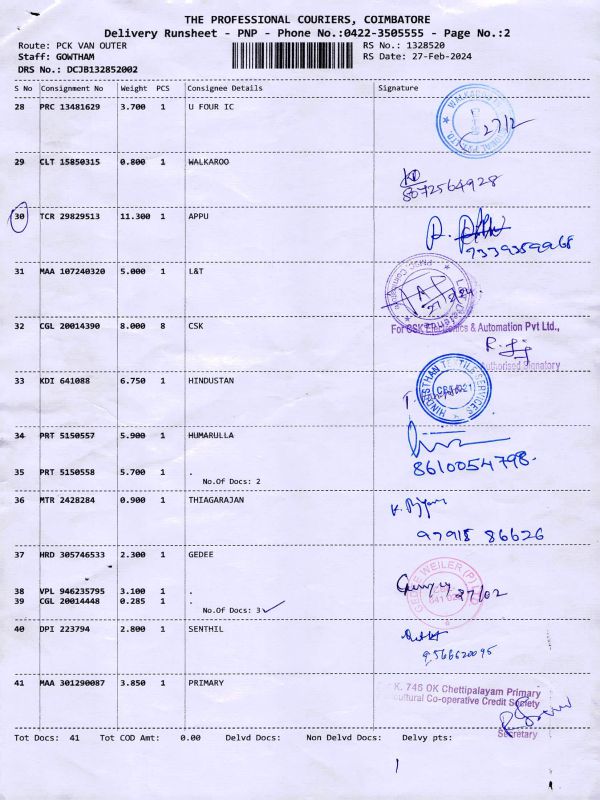 THE PROFESSIONAL COURIERS, COIMBATORE
Delivery Runsheet - PNP - Phone No.:0422-3505555 - Page No.:2
Route: PCK VAN OUTER RS No.: 1328520
Staff: GOWTHAM RS Date: 27-Feb-2024
DRS No.: DCJB132852002
S No Consignment No Weight PCS Consignee Details Signature
28 PRC 13481629 3.700 1 U FOUR IC
27/2
29 CLT 15850315 0.800 1 WALKAROO
8072564928
30 TCR 29829513 11.300 1 APPU
9339359968
31 MAA 107240320 5.000 1 L&T
32 CGL 20014390 8.000 8 CSK
For CSK Electronics & Automation Pvt Ltd.,
Authorised Signatory
33 KDI 641088 6.750 1 HINDUSTAN
HINDUSTHAN TEXTILE SERVICES
34 PRT 5150557 5.900 1 HUMARULLA
8610054798
35 PRT 5150558 5.700 1 .
No.Of Docs: 2
36 MTR 2428284 0.900 1 THIAGARAJAN
97915 86626
37 HRD 305746533 2.300 1 GEDEE
GEDEE WEILER (P) LTD
27/02
38 VPL 946235795 3.100 1 .
39 CGL 20014448 0.285 1 .
No.Of Docs: 3
40 DPI 223794 2.800 1 SENTHIL
9566620095
41 MAA 301290087 3.850 1 PRIMARY
K. 746 OK Chettipalayam Primary
cultural Co-operative Credit Society
Secretary
Tot Docs: 41 Tot COD Amt: 0.00 Delvd Docs: Non Delvd Docs: Delvy pts: